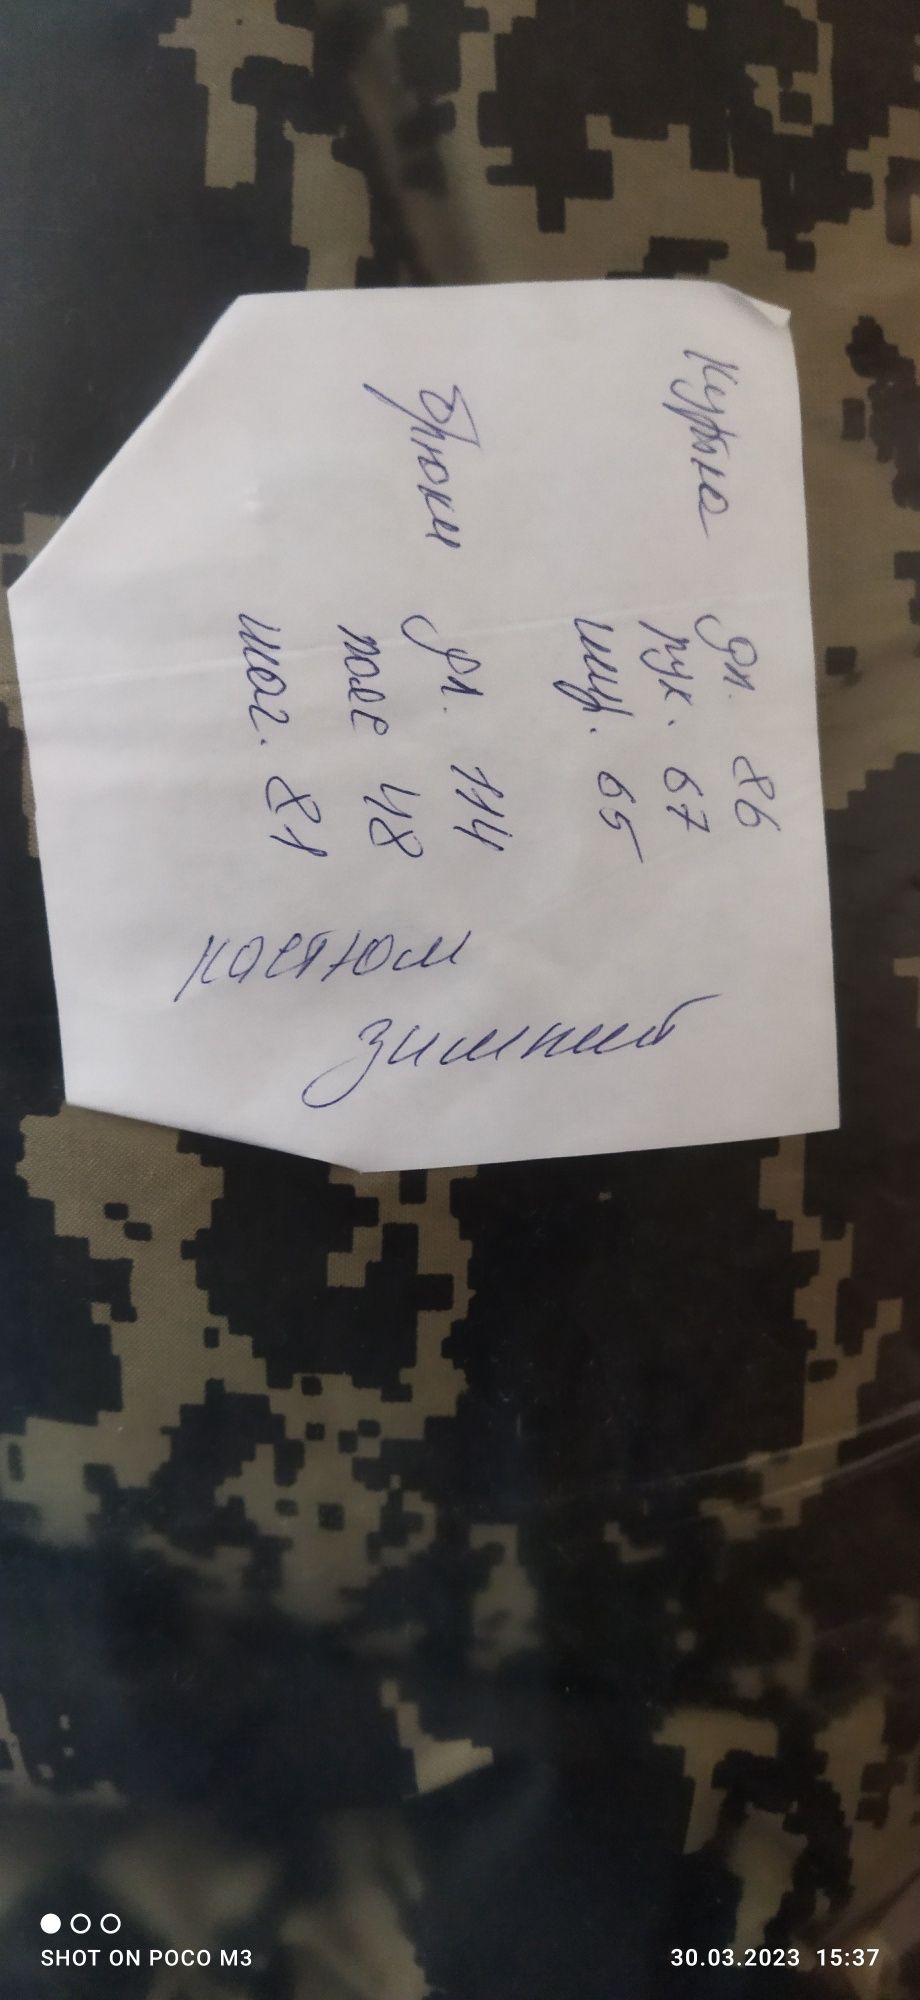 Куртка дл. 86
рук. 67
шир. 65
Брюки дл. 114
пояс 48
шаг. 81
костюм
зимний
SHOT ON POCO M3
30.03.2023 15:37